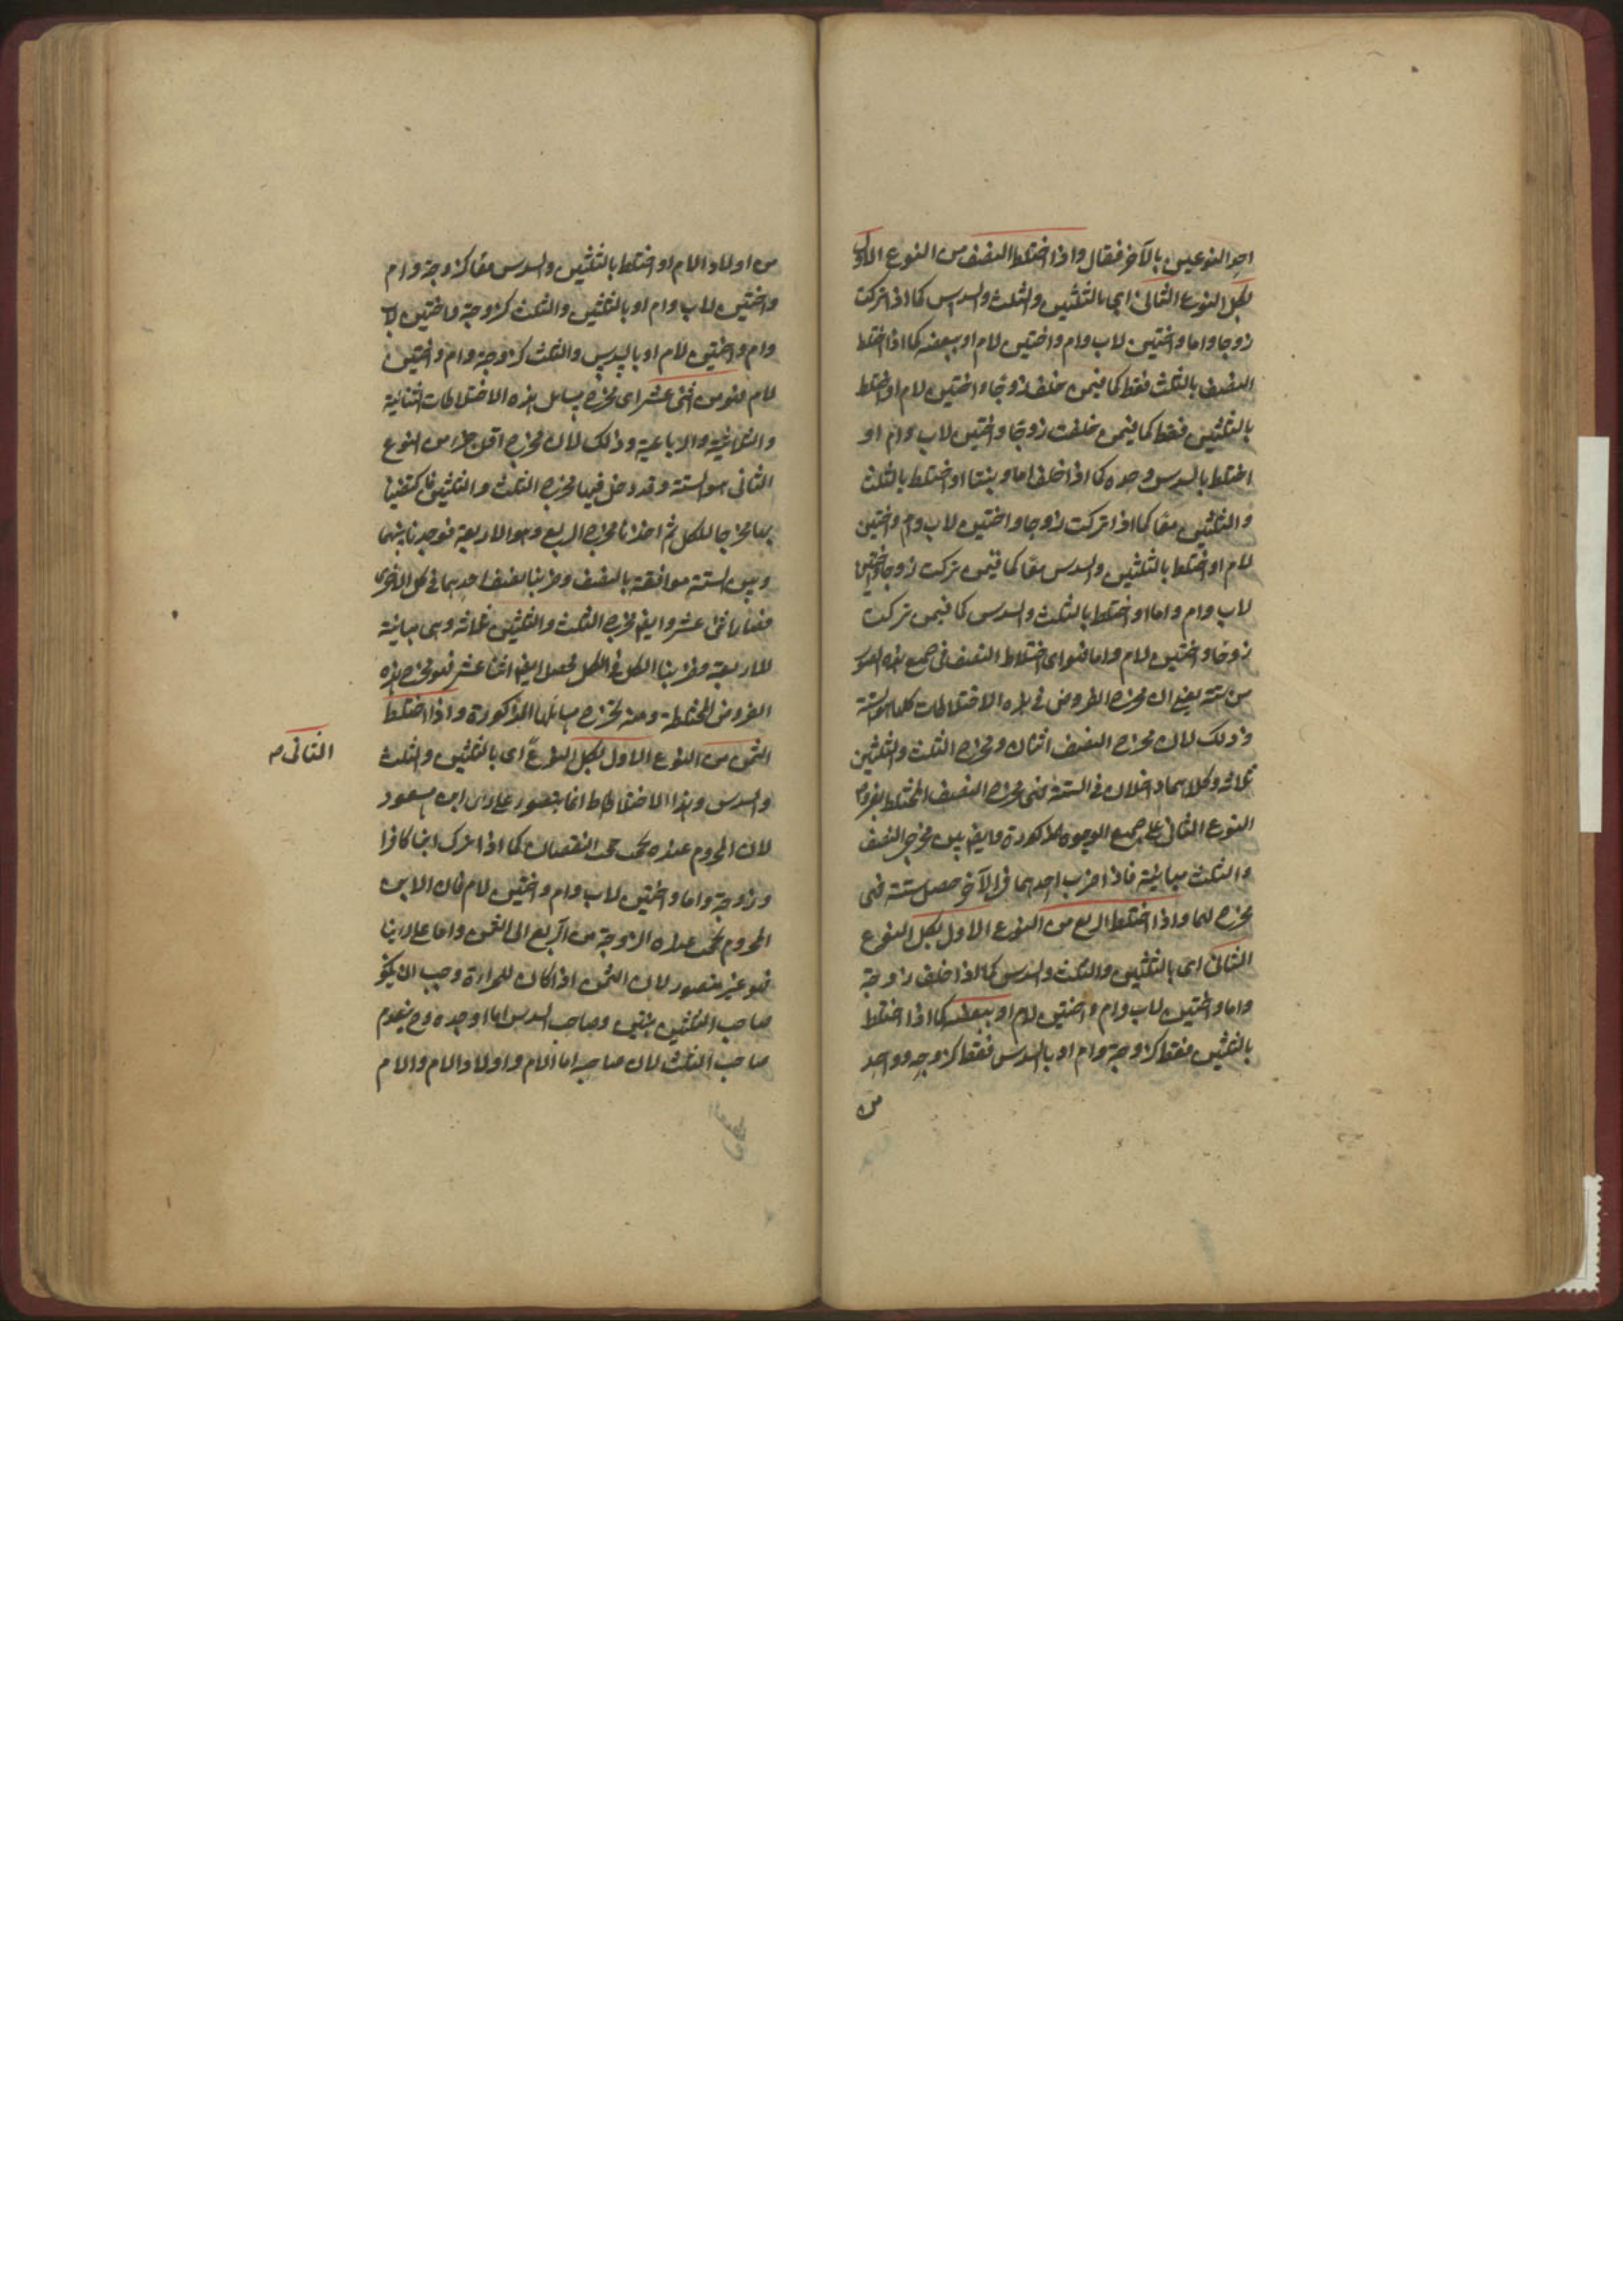 احد النوعين بالآخر فقال واذا اختلط النصف من النوع الاول
بكل النوع الثانى اى بالثلثين والثلث والسدس كما اذا تركت
زوجا واما واختين لاب وام واختين لام او ببعضه كما اذا اختلط
النصف بالثلث فقط كما فيمن خلف زوجا واختين لام او اختلط
بالثلثين فقط كما فيمن خلفت زوجا واختين لاب وام او
اختلط بالسدس وحده كما اذا خلف اما وبنتا او اختلط بالثلث
والثلثين معا كما اذا تركت زوجا واختين لاب وام واختين
لام او اختلط بالثلثين والسدس معا كما فيمن تركت زوجا واختين
لاب وام واما او اختلط بالثلث والسدس كما فيمن تركت
زوجا واختين لام واما فهو اى اختلاط النصف فى جميع هذه الصور
من ستة يعنى ان مخرج الفروض فى هذه الاختلاطات كلها هو الستة
وذلك لان مخرج النصف اثنان ومخرج الثلث والثلثين
ثلاثة وكلاهما داخلان فى الستة فهى مخرج النصف المختلط بفروض
النوع الثانى على جميع الوجوه المذكورة وايضا بين مخرج النصف
والثلث مباينة فاذا ضرب احدهما فى الآخر حصل ستة فهى
مخرج لهما واذا اختلط الربع من النوع الاول بكل النوع
الثانى اى بالثلثين والثلث والسدس كما اذا خلف زوجة
واما واختين لاب وام واختين لام او ببعضه كما اذا اختلط
بالثلثين فقط كزوجة وام او بالسدس فقط كزوجة وواحد
من
من اولاد الام او اختلط بالثلثين والسدس معا كزوجة وام
واختين لاب وام او بالثلثين والثلث كزوجة واختين لاب
وام واختين لام او بالسدس والثلث كزوجة وام واختين
لام فهو من اثنى عشر اى مخرج مسائل هذه الاختلاطات الثنائية
والثلاثية والرباعية وذلك لان مخرج اقل جزء من النوع
الثانى هو الستة وقد دخل فيها مخرج الثلث والثلثين فاكتفينا
بها مخرجا للكل ثم اخذنا مخرج الربع وهو الاربعة فوجدنا بينهما
وبين الستة موافقة بالنصف وضربنا نصف احدهما فى كل الاخرى
فصار اثنى عشر وايضا مخرج الثلث والثلثين ثلاثة وهى مباينة
للاربعة وضربنا الكل فى الكل فحصل ايضا اثنا عشر فهو مخرج هذه
الفروض المختلطة ومنه تخرج مسائلها المذكورة واذا اختلط
الثمن من النوع الاول بكل النوع اى بالثلثين والثلث
الثانى صح
والسدس وهذا الاختلاط انما يتصور على راى ابن مسعود
لان المحروم عنده يحجب حجب النقصان كما اذا ترك ابنا كافرا
وزوجة واما واختين لاب وام واختين لام فان الابن
المحروم يحجب عنده الزوجة من الربع الى الثمن واما على راينا
فهو غير متصور لان الثمن اذا كان للمراة وجب ان يكون
صاحب الثلثين بنتين وصاحب السدس اما او جدة وح ينعدم
صاحب الثلث لان صاحبه اما الام واولاد الام والام